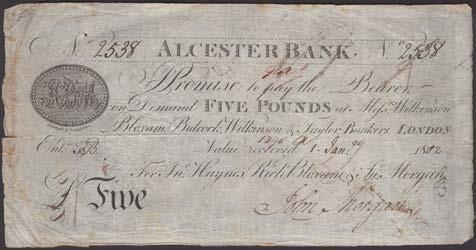 No 2538 ALCESTER BANK. No 2538
I Promise to pay the Bearer
on Demand FIVE POUNDS at Messrs Wilkinson
Bloxam, Wilkinson & Taylor Bankers, LONDON
Value received 1 Jany 1802
Entd
For Jno Haynes, Richd Bloxam & Jno Morgan
£ Five
John Morgan